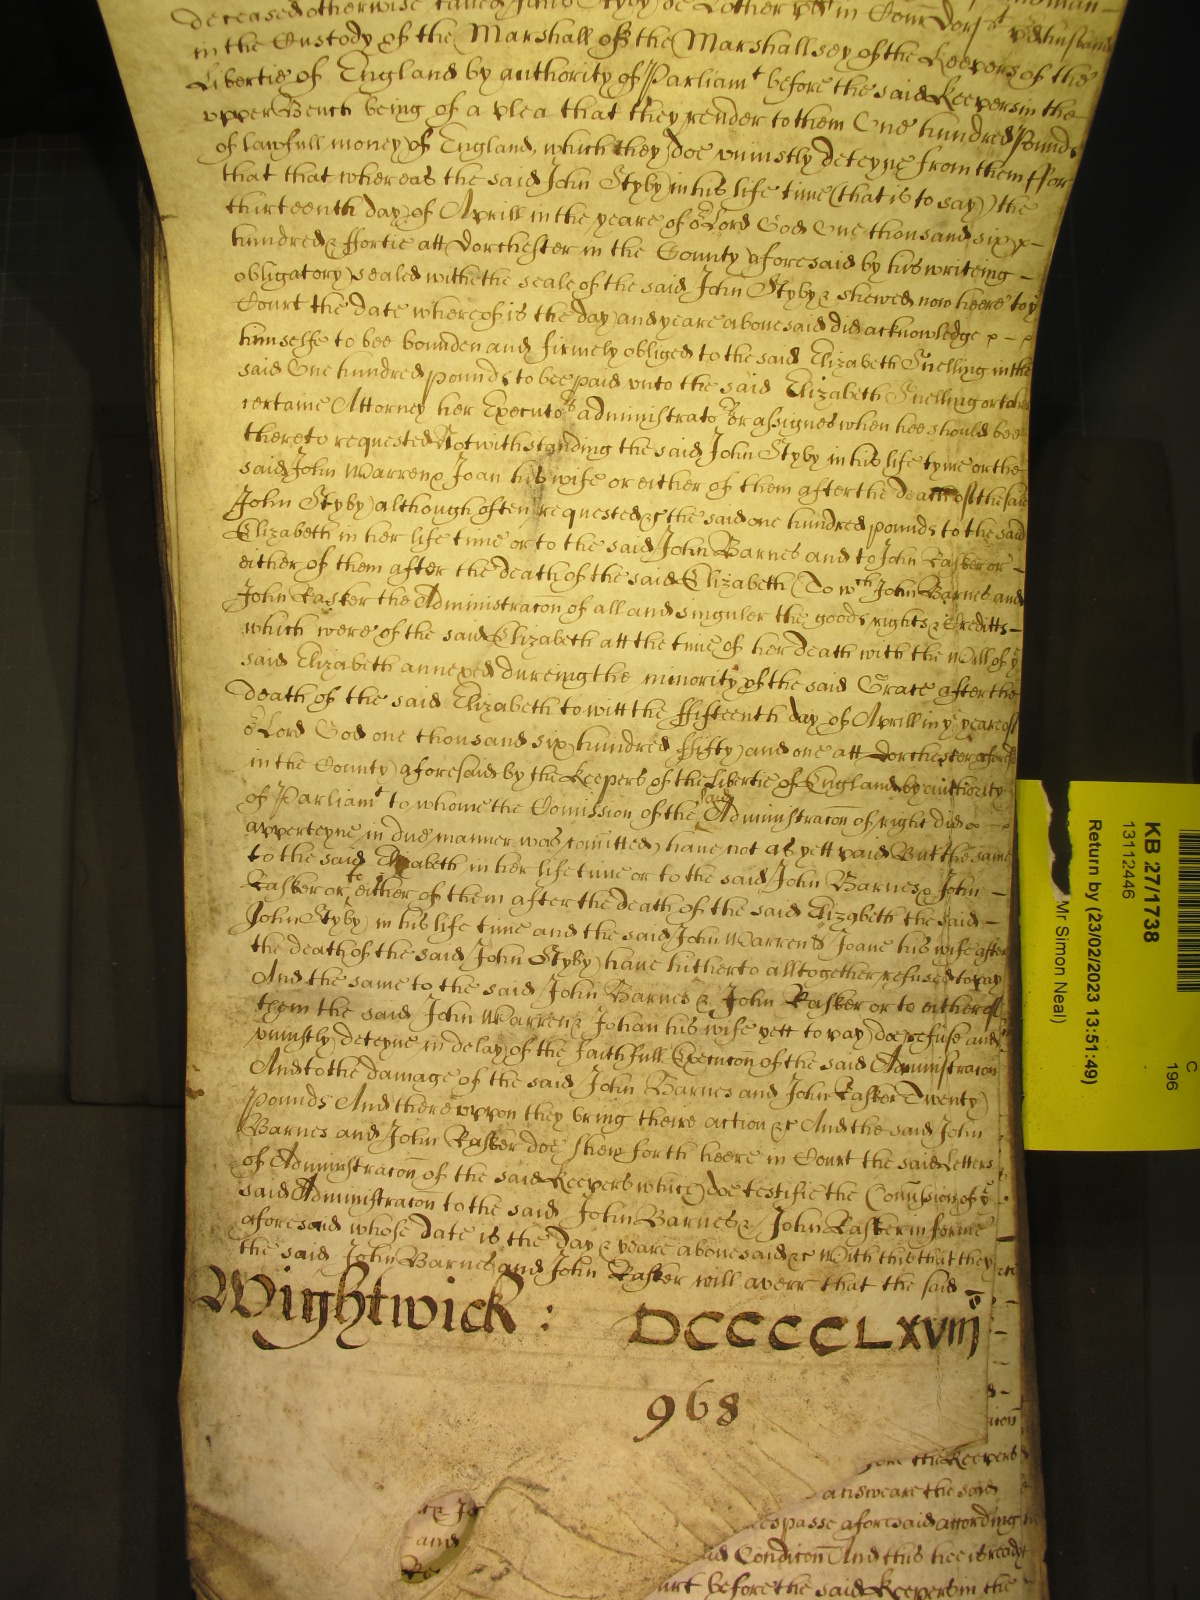 deceased otherwise called John Styby de Lother
in the Custody of the Marshall of the Marshallsey of the Keepers of the
Libertie of England by authority of Parliamt before the said Keepers in the
upper Bench being of a plea that they render to them One hundred Pounds
of lawfull money of England, which they doe uniustly deteyne from them ffor
that that whereas the said John Styby in his life time (that is to say) the
thirteenth day of Aprill in the yeare of or Lord God One thousand six
hundred & ffortie att Dorchester in the County aforesaid by his writeing
obligatory sealed with the seale of the said John Styby & shewed now heere to ye
Court the date whereof is the day and yeare abovesaid did acknowledge
himselfe to bee bounden and firmely obliged to the said Elizabeth Snelling in the
said One hundred pounds to bee paid unto the said Elizabeth Snelling or to her
certaine Attorney her Executors administrators or assignes when hee should bee
thereto requested Notwithstanding the said John Styby in his life tyme or the
said John Warren & Joan his wife or either of them after the death of the said
John Styby although often requested &c the said one hundred pounds to the said
Elizabeth in her life time or to the said John Barnes and to John Rasker or
either of them after the death of the said Elizabeth (To wch John Barnes and
John Rasker the Administracon of all and singuler the goods rights & Creditts
which were of the said Elizabeth att the time of her death with the Will of ye
said Elizabeth annexed dureing the minority of the said Grace after the
death of the said Elizabeth to witt the ffifteenth day of Aprill in ye yeare of
or Lord God one thousand six hundred ffifty and one att Dorchester aforesaid
in the County aforesaid by the Keepers of the Libertie of England by authority
of Parliamt to whome the Comission of the said Administracon of right did
apperteyne in due manner was comitted) have not as yett paid But the same
to the said Elizabeth in her life time or to the said John Barnes & John
Rasker or to either of them after the death of the said Elizabeth the said
John Styby in his life time and the said John Warren & Joane his wife after
the death of the said John Styby have hitherto alltogether refused to pay
And the same to the said John Barnes & John Rasker or to either of
them the said John Warren & Johan his wife yett to pay doe refuse and
uniustly deteyne in delay of the faithfull Execucon of the said Administracon
And to the damage of the said John Barnes and John Rasker Twenty
Pounds And thereuppon they bring theire action &c And the said John
Barnes and John Rasker doe shew forth heere in Court the said Letters
of Administracon of the said Keepers which doe testifie the Comission of ye
said Administracon to the said John Barnes & John Rasker in forme
aforesaid whose date is the day & yeare abovesaid &c With this that they
the said John Barnes and John Rasker will averr that the said
Wightwick : DCCCCCLXViij
968
the Keepers
answeare the said
espasse aforesaid according
Condicon And this hee is ready
before the said Keepers in the
and
KB 27/1738
13112446
Return by (23/02/2023 13:51:49)
Mr Simon Neal)
C
196